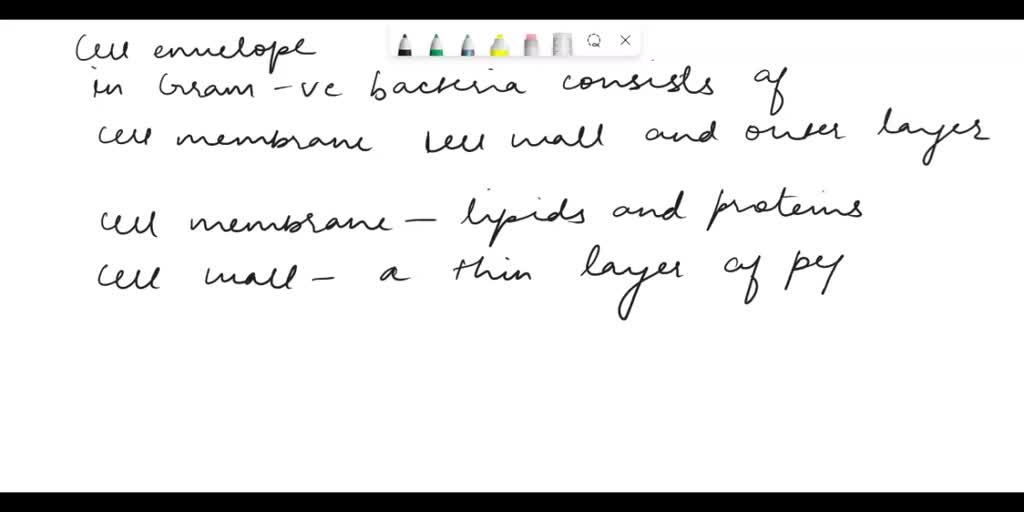 Cell envelope
in Gram -ve bacteria consists of
cell membrane cell wall and outer layer
cell membrane - lipids and proteins
cell wall - a thin layer of pey